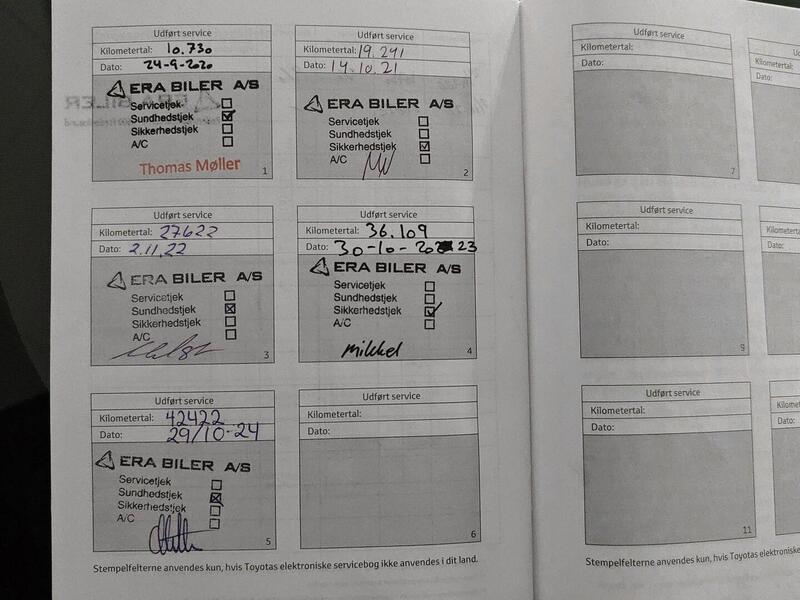 Udført service
Kilometertal: 10.730
Dato: 24-9-2020
ERA BILER A/S
Servicetjek
Sundhedstjek
Sikkerhedstjek
A/C
Thomas Møller
1
Udført service
Kilometertal: 19.291
Dato: 14.10.21
ERA BILER A/S
Servicetjek
Sundhedstjek
Sikkerhedstjek
A/C
2
Udført service
Kilometertal: 27622
Dato: 2.11.22
ERA BILER A/S
Servicetjek
Sundhedstjek
Sikkerhedstjek
A/C
3
Udført service
Kilometertal: 36.109
Dato: 30-10-20 23
ERA BILER A/S
Servicetjek
Sundhedstjek
Sikkerhedstjek
A/C
mikkel
4
Udført service
Kilometertal: 42422
Dato: 29/10-24
ERA BILER A/S
Servicetjek
Sundhedstjek
Sikkerhedstjek
A/C
5
Udført service
Kilometertal:
Dato:
6
Stempelfelterne anvendes kun, hvis Toyotas elektroniske servicebog ikke anvendes i dit land.
Udført service
Kilometertal:
Dato:
7
Kilometertal:
Dato:
Udført service
Kilometertal:
Dato:
9
Kilometert
Dato:
Udført service
Kilometertal:
Dato:
11
Kilomet
Dato:
Stempelfelterne anvendes kun, hvis Toyotas elektroniske